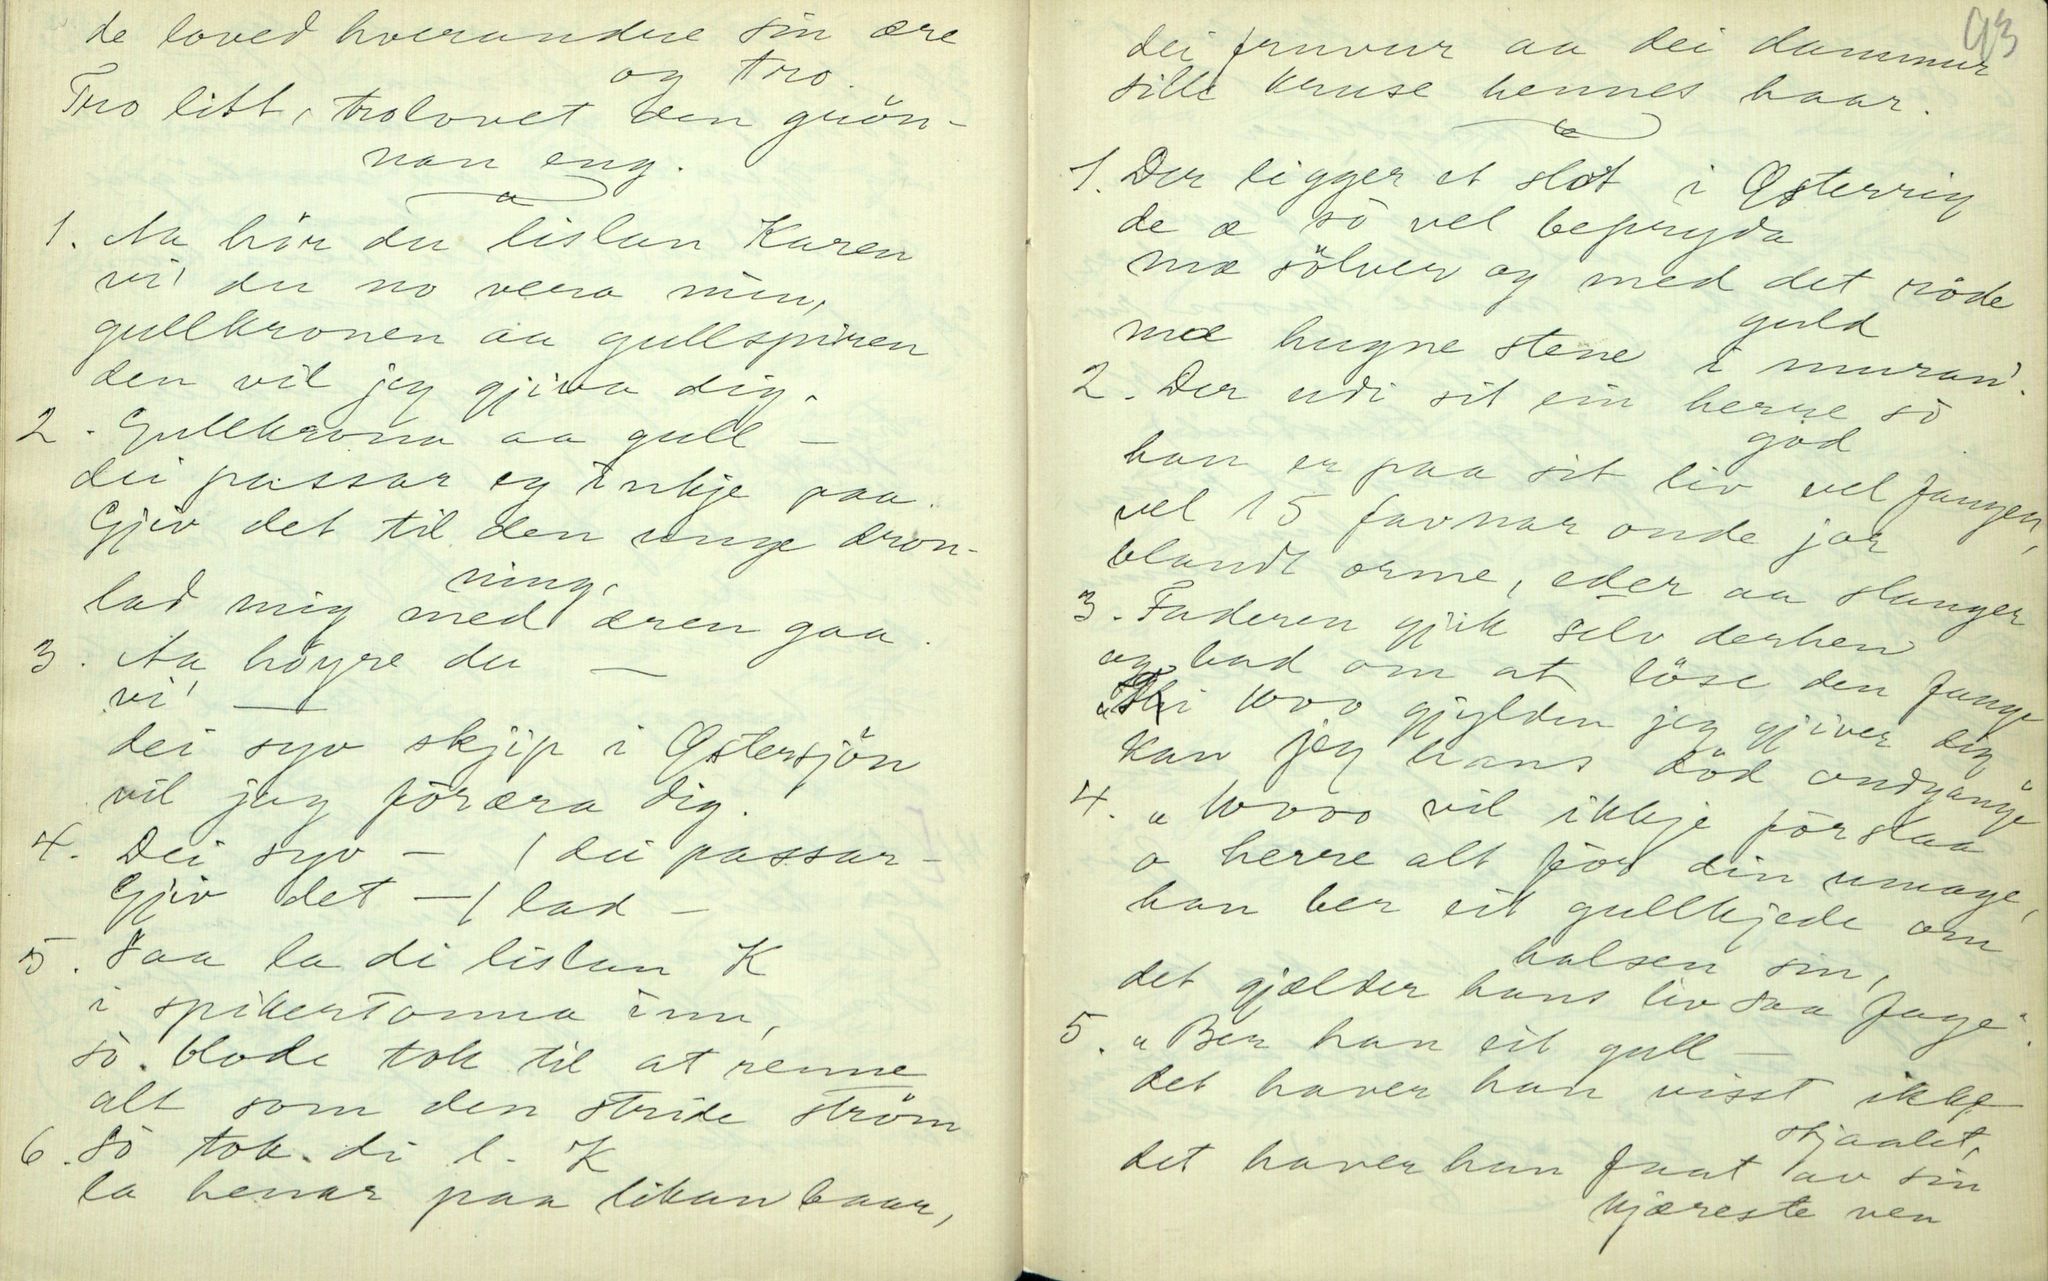 de loved hverandre sin ære
og tro.
Tro litt, trolovet den grön-
nan eng.
a
1. Aa hör du lislan Karen
vi' du no vera min,
gullkronen aa gullspiren
den vil jeg gjiva dig.
2. Gullkrona aa gull –
dei passar eg inkje paa.
Gjiv det til den unge dron-
ning,
lad mig med æren gaa.
3. Aa höyre du –
vi' –
dei syv skjip i Østersjön
vil jag föræra dig.
4. Dei syv – / dei passar –
Gjiv det – / lad –
5. Saa la di lislan K
i spikertonna inn,
så blode tok til at renne
alt som den stride ström
6. Så tok di l. K
la henar paa likan baar,
93
dei fruvur aa dei dammur
sille kruse hennes haar.
b
1. Der ligger et slot i Østerrig
de æ så vel bepryda
mæ sölver og med det röde
guld
mæ hugne stene i muran'.
2. Der udi sit ein herre så
god
han er paa sit liv vel fangen,
vel 15 favnar onde jor
blandt orme, eder aa slanger
3. Faderen gjik selv derhen
og bad om at löse den fange
"Thi 1000 gjylden jeg gjiver dig
kan jeg hans död undgange"
4. "10000 vil ikkje förslaa
o herre alt för din umage,
han ber eit gullkjede om
halsen sin,
det gjælder hans liv saa fage".
5. "Ber han eit gull –
det haver han visst ikke
stjaalet,
det haver han faat av sin
kjæreste ven